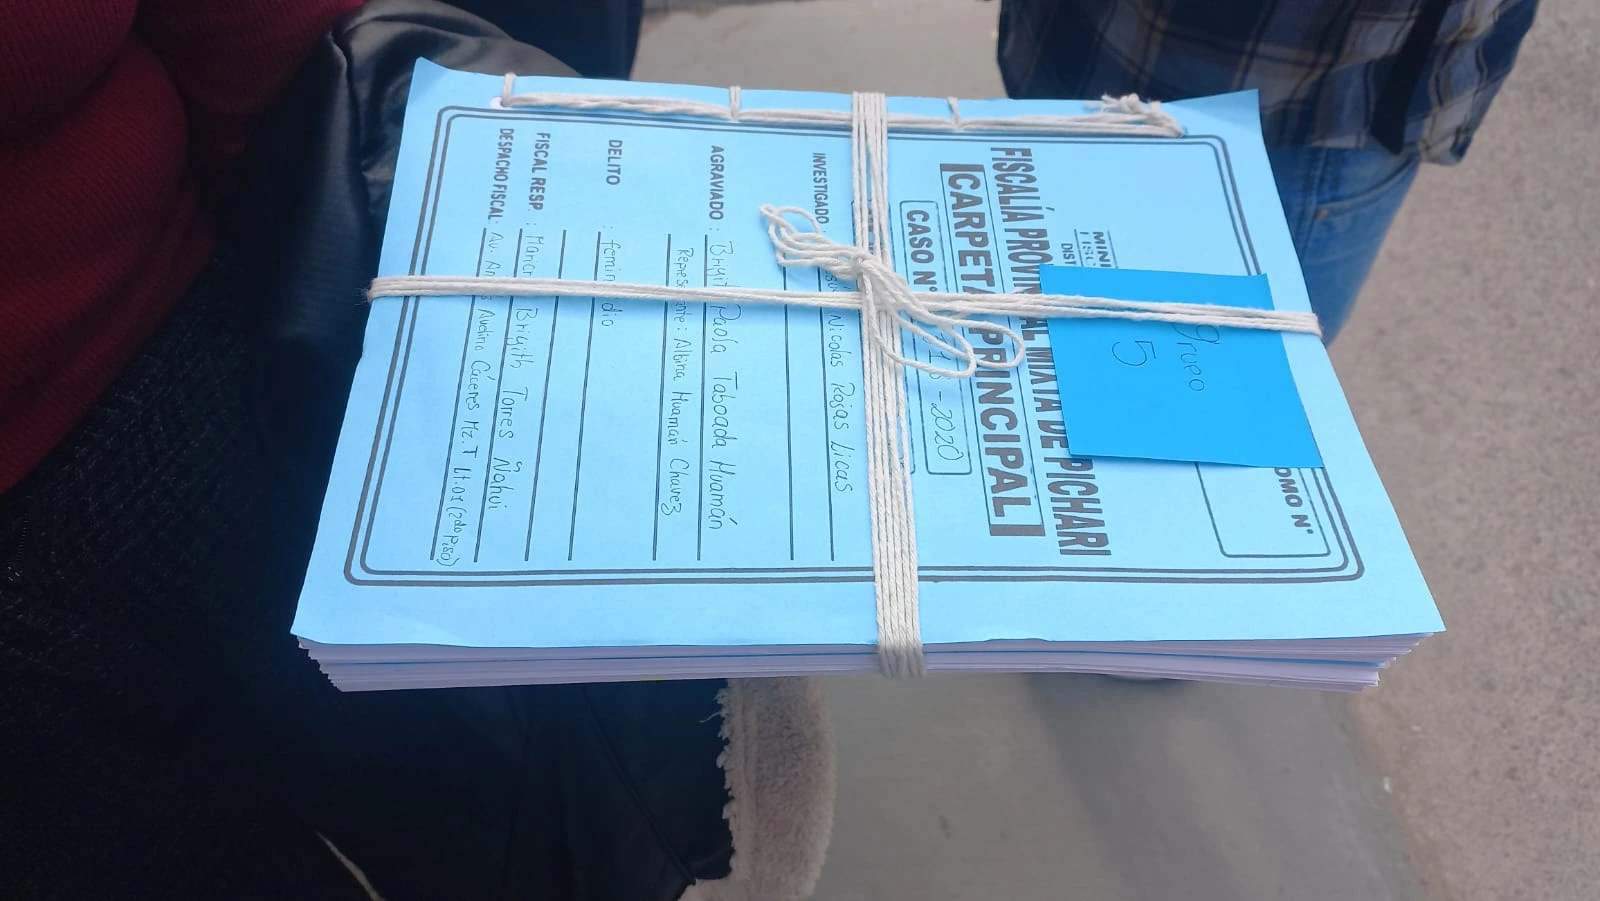 MINI
FISC
DIST
FISCALÍA PROVINCIAL MIXTA DE PICHARI
CARPETA PRINCIPAL
CASO N° -2020
TOMO N°
Grupo
5
INVESTIGADO Nicolas Rojas Licas
AGRAVIADO : Brigit Paola Taboada Huamán
Representante : Albina Huamán Chavez
DELITO : feminicidio
FISCAL RESP : Brigith Torres Ñahui
DESPACHO FISCAL: Av. Avelino Cáceres Mz.T Lt.01 (2do Piso)